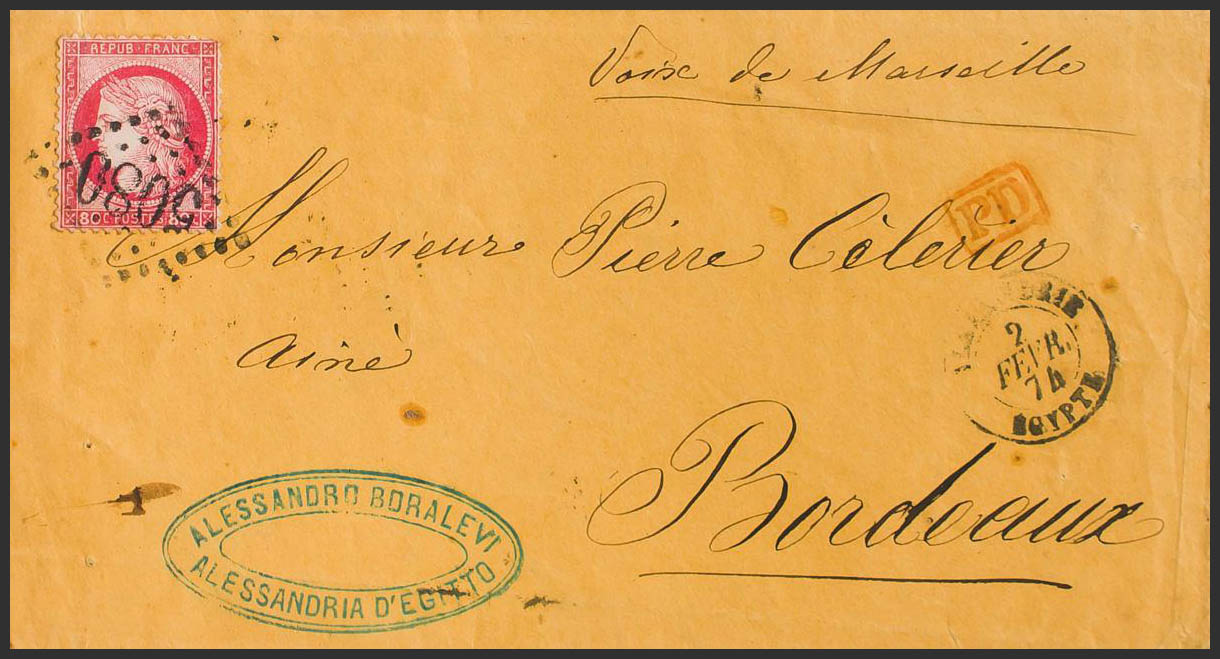 REPUB·FRANC·
80 C·POSTES·80 C
5080
Voix de Marseille
PD
Monsieur Pierre Célerier
Ainé
ALEXANDRIE
2
FEVR.
74
EGYPTE
Bordeaux
ALESSANDRO BORALEVI
ALESSANDRIA D'EGITTO